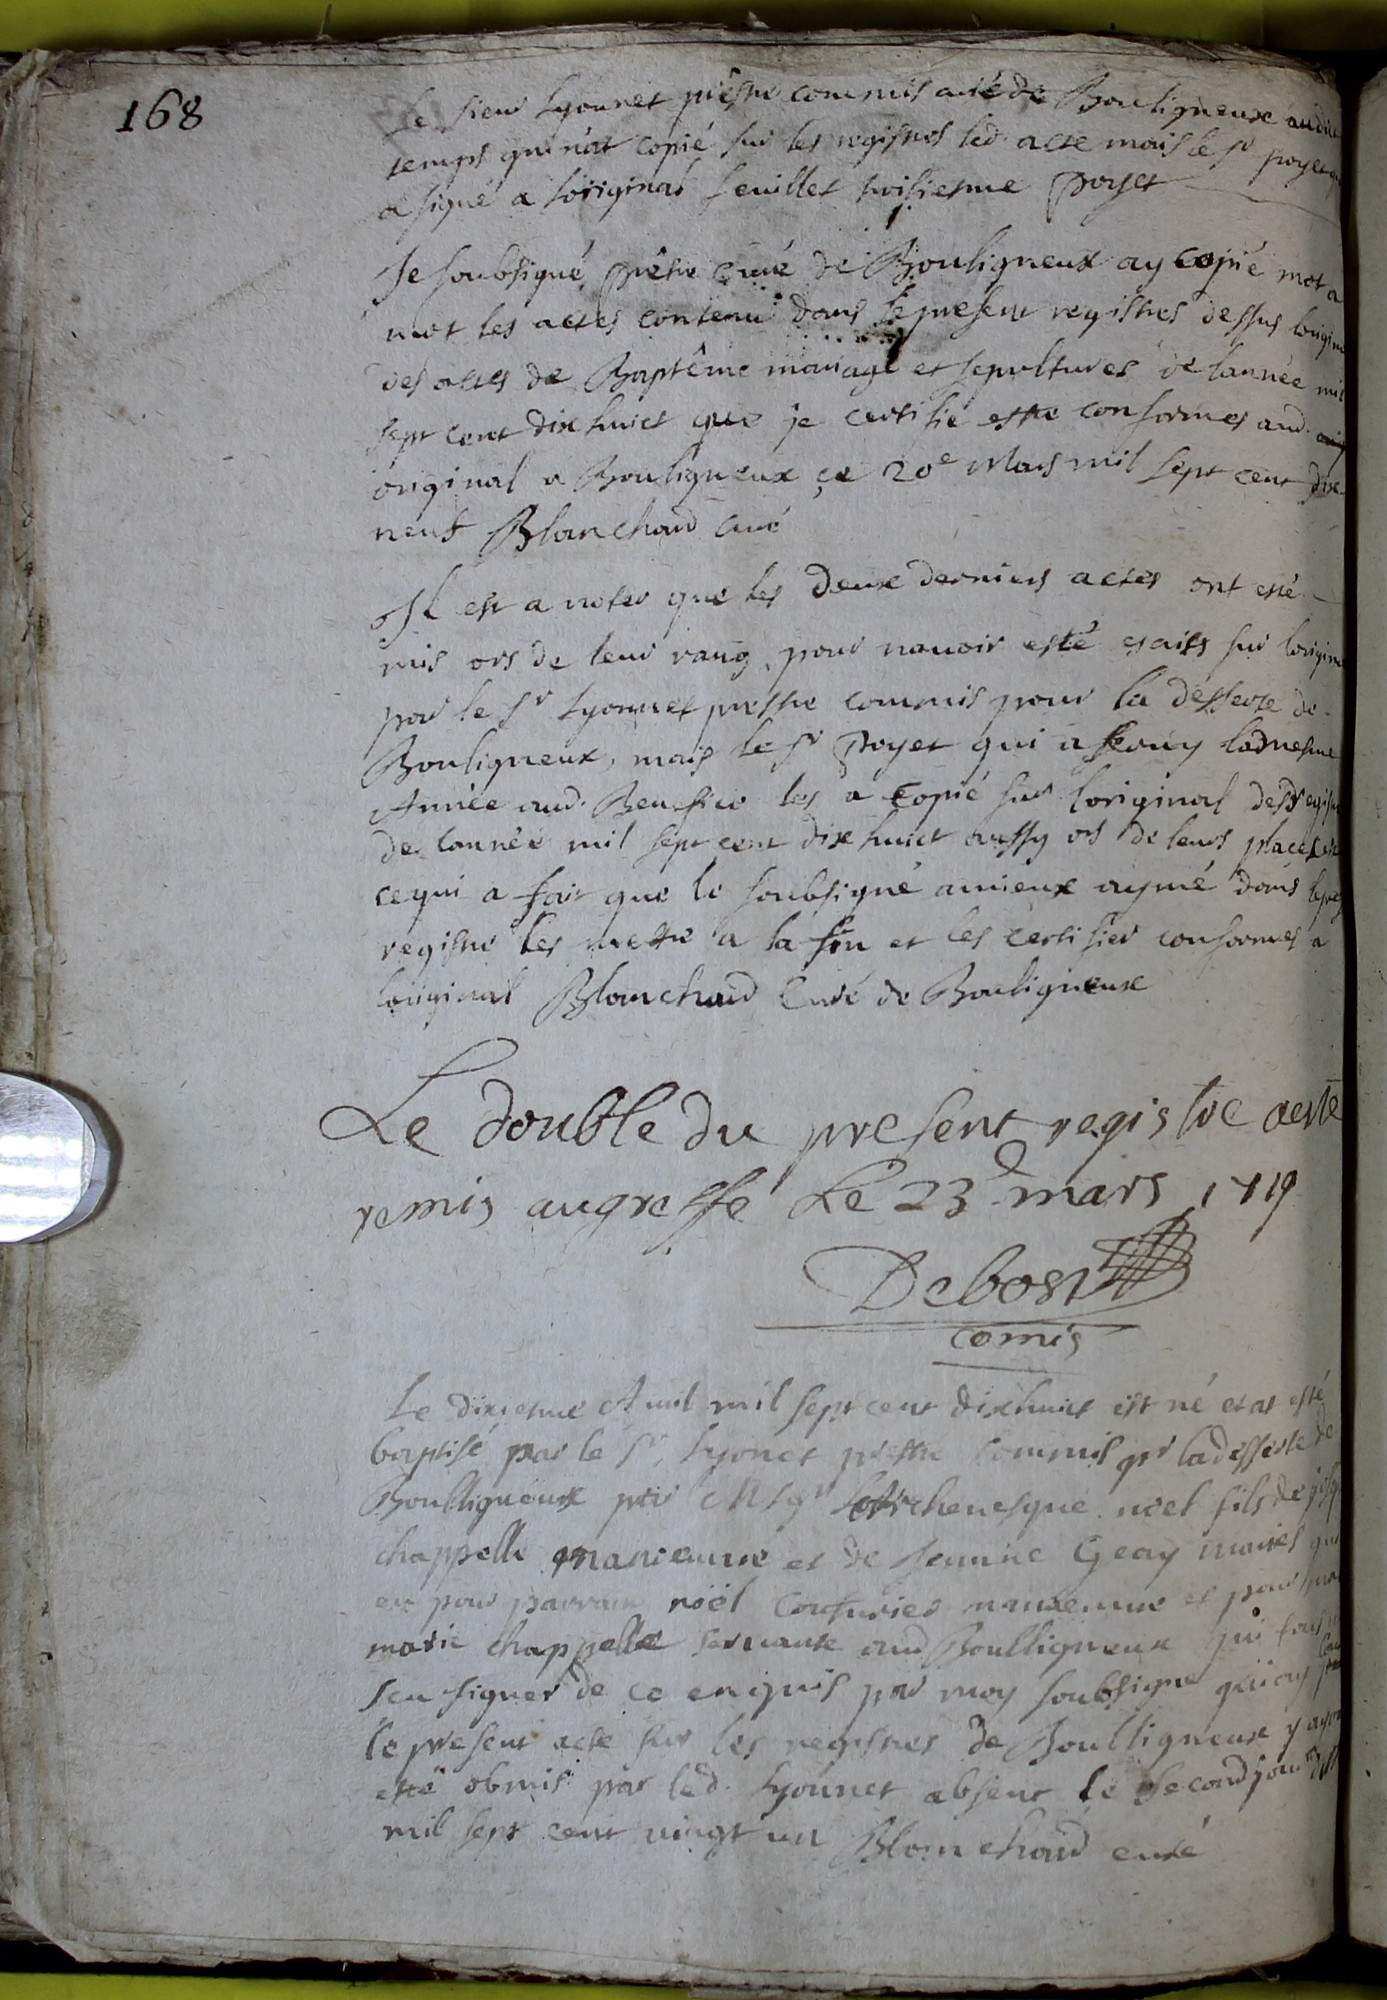 168
Le sieur Lyonnet prestre commis curé de Bouligneux audit
temps qui n'at copié sur les registres led. acte mais le sr poyet qui
a signé a l'original feuillet troisiesme Poyet
Je soubsigné prêtre curé de Bouligneux ay copié mot a
mot les actes contenu dans le present registres dessus lorigina
des actes de Baptême mariage et sepultures de lannée mil
sept cent dix huict que je certifie estre conformes aud.
original a Bouligneux ce 20e Mars mil sept cent dix
neuf Blanchard curé
Il est a noter que les deux derniers actes ont esté
mis ors de leur rang, pour navoir esté escrits sur lorigina
par le sr Lyonnet prestre commis pour la desserte de
Bouligneux, mais le sr Poyet qui a ladmesme
Année aud. Benefice les a copié sur l'original desd regist
de lannée mil sept cent dix huict aussy ors de leurs places
ce qui a fait que le soubsigné a mieux aymé dans lepres
registre les mettre a la fin et les certifier conformes a
loriginal Blanchard Curé de Bouligneux
Le double du present registre aesté
remis augreffe Le 23e mars 1719
Debost
comis
Le dixiesme Avril mil sept cent dixhuict est né et at esté
baptisé par le sr. Lyonet prestre commis pr ladesserte de
Boulligneux par Msgr Larchevesque noel fils de
chappelle et de Jeanne Geay mariés qui
eu pour parrain noël Couturier et pour
marie chappelle servante aud Boulligneux qui
sceu signer de ce enquis par moy soubsigné qui ay
le present acte sur les registres de Boulligneux y ayant
esté obmis par led. Lyonnet absent le second jour
mil sept cent vingt un Blanchard curé